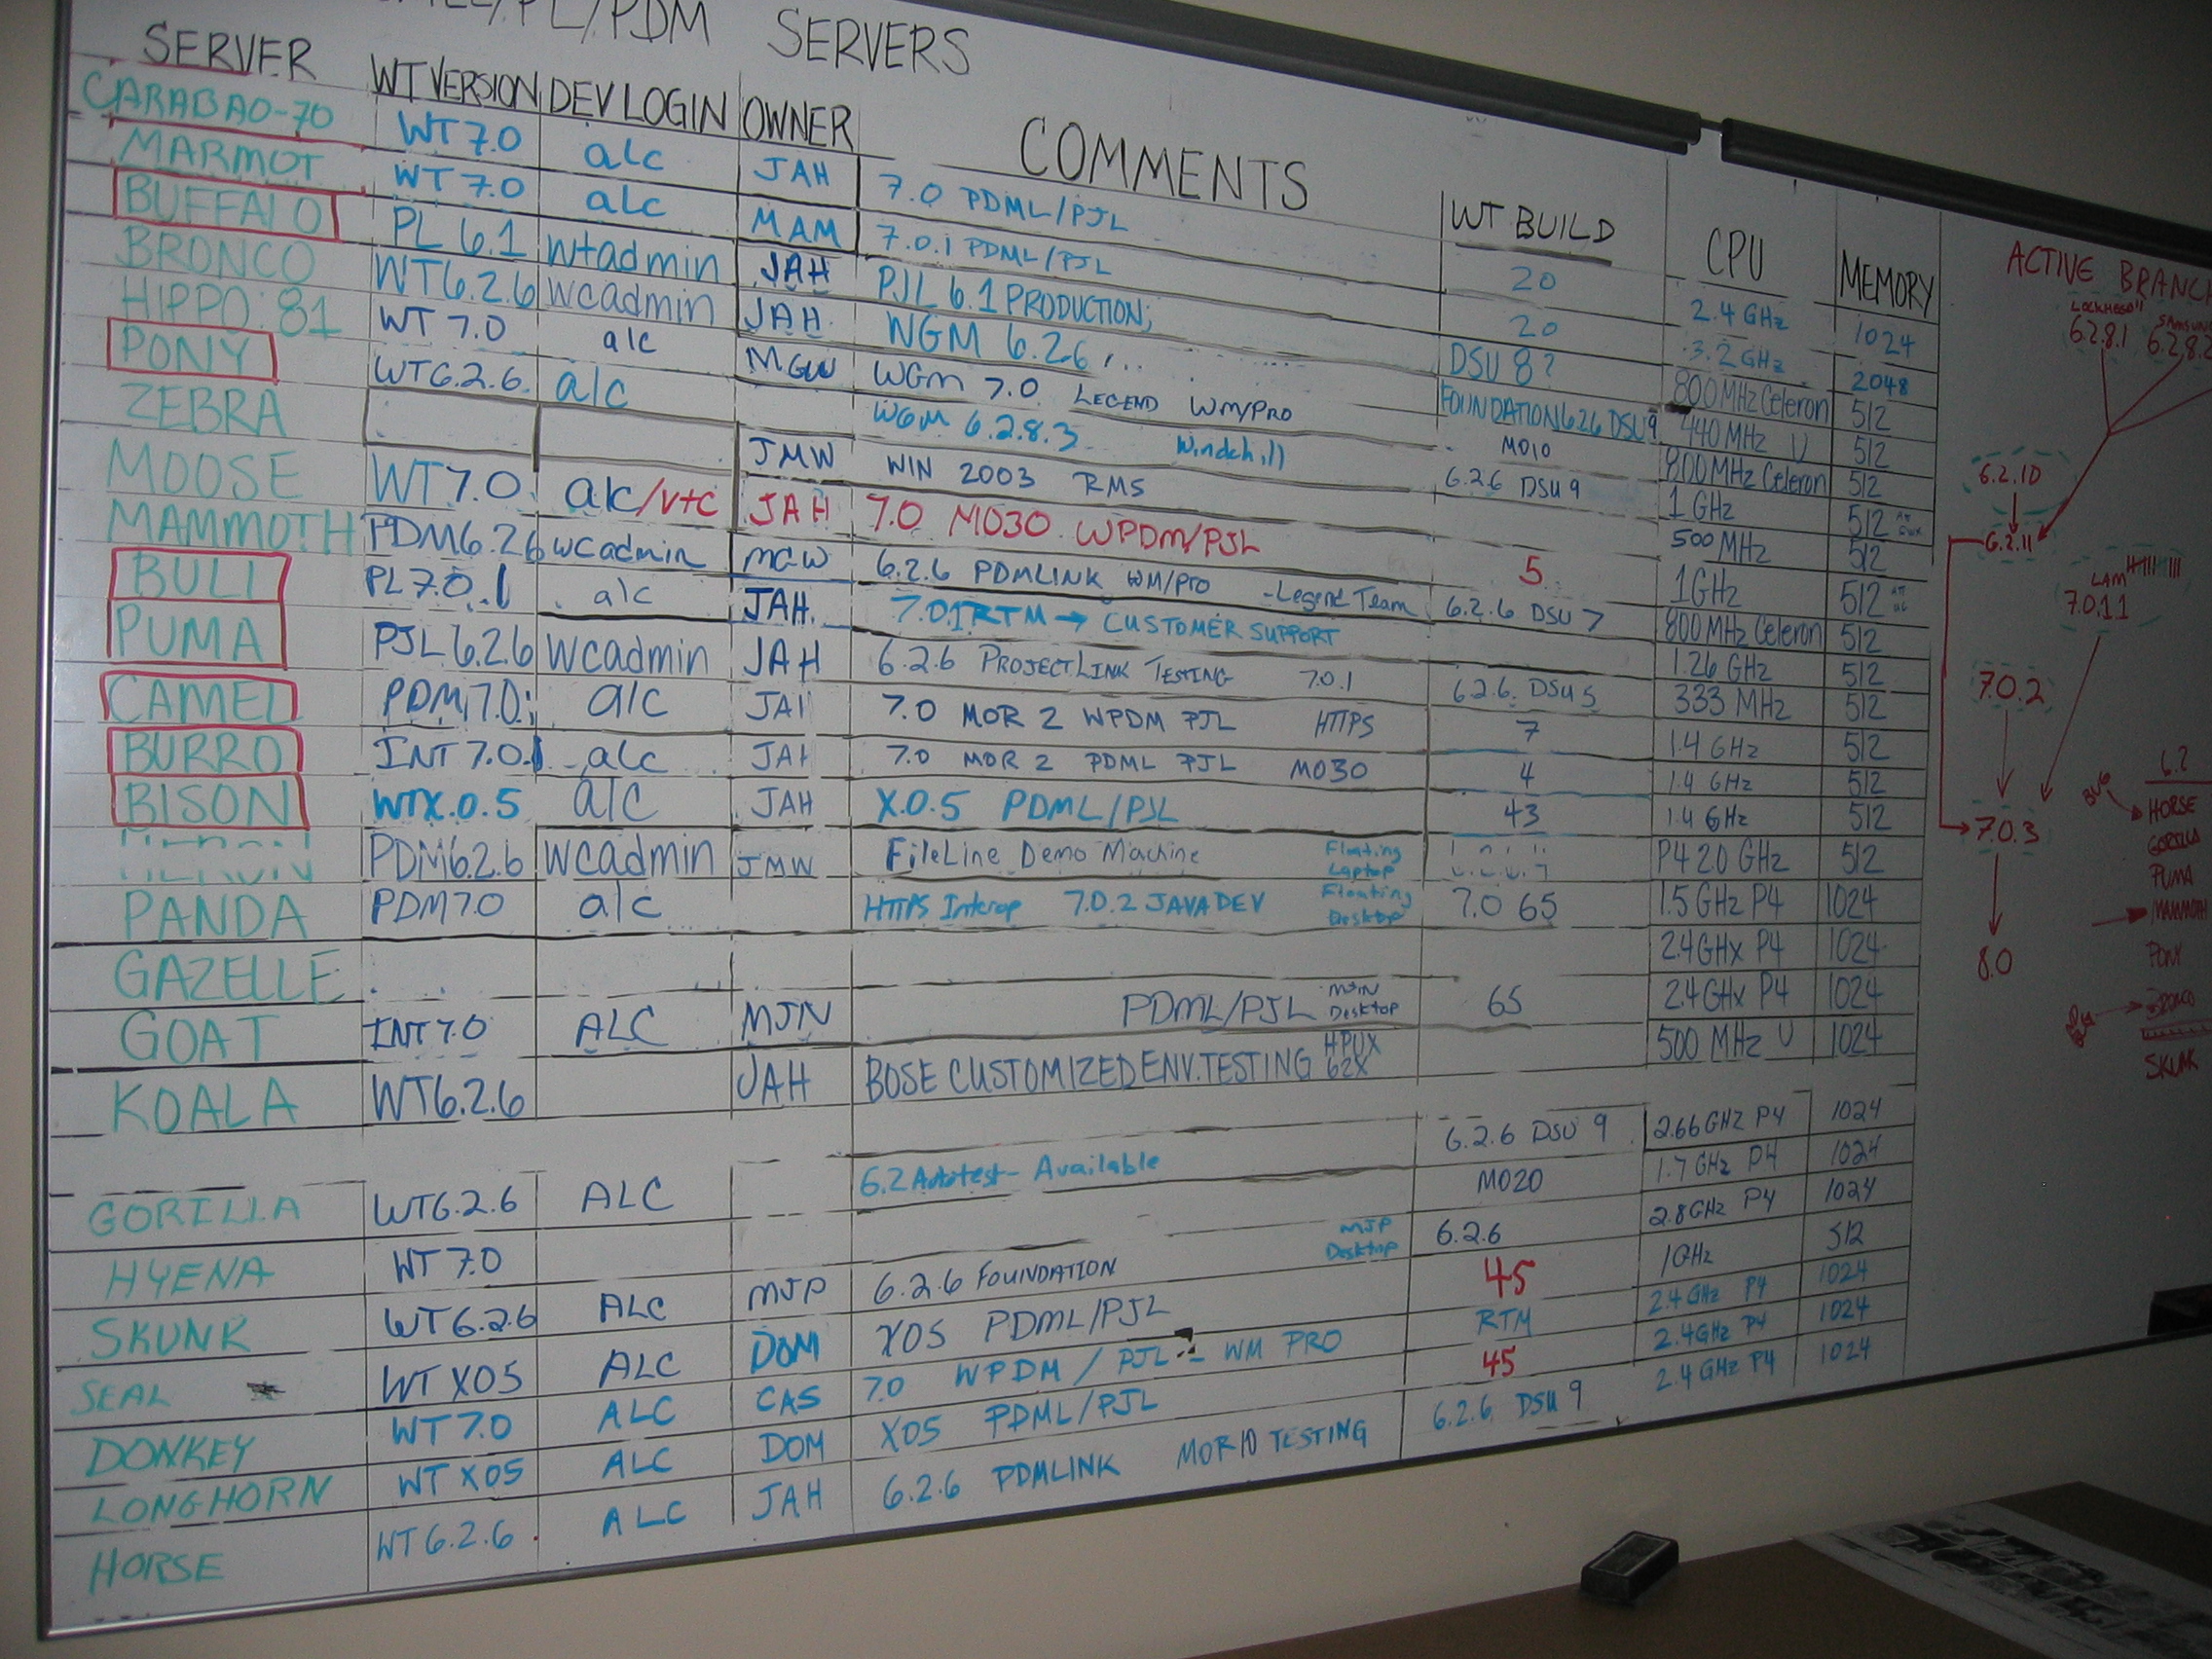 /PL/PDM SERVERS
SERVER WT VERSION DEV LOGIN OWNER COMMENTS WT BUILD CPU MEMORY
CARABAO-70 WT 7.0 alc JAH 7.0 PDML/PJL 20 2.4 GHz 1024
MARMOT WT 7.0 alc MAM 7.0.1 PDML/PJL 20 3.2 GHz 2048
BUFFALO PL 6.1 wtadmin JAH PJL 6.1 PRODUCTION; DSU 8? 800 MHz Celeron 512
BRONCO WT6.2.6 wcadmin JAH. WGM 6.2.6 FOUNDATION 626 DSU9 440 MHz U 512
HIPPO:81 WT 7.0 alc MGW WGM 7.0 LEGEND WM/PRO M010 800 MHz Celeron 512
PONY WT6.2.6. alc WGM 6.2.8.3 Windchill 6.2.6 DSU 9 1 GHz 512
ZEBRA JMW WIN 2003 RMS 500 MHz 512
MOOSE WT7.0 alc/vtc JAH 7.0 M030 WPDM/PJL 5 1GHz 512
MAMMOTH PDM6.26 wcadmin MGW 6.2.6 PDMLINK WM/PRO -Legend Team 6.2.6 DSU 7 800 MHz Celeron 512
BULL PL7.0.1 alc JAH. 7.0.1RTM → CUSTOMER SUPPORT 1.26 GHz 512
PUMA PJL6.2.6 wcadmin JAH 6.2.6 PROJECTLINK TESTING 7.0.1 6.2.6. DSU 5 333 MHz 512
CAMEL PDM7.0 alc JAH 7.0 MOR 2 WPDM PJL HTTPS 7 1.4 GHz 512
BURRO INT7.0.1 alc JAH 7.0 MOR 2 PDML PJL M030 4 1.4 GHz 512
BISON WTX.0.5 alc JAH X.0.5 PDML/PJL 43 1.4 GHz 512
PDM6.2.6 wcadmin JMW FileLine Demo Machine Floating Laptop P4 20 GHz 512
PANDA PDM7.0 alc HTTPS Interop 7.0.2 JAVA DEV Floating Desktop 7.0 65 1.5 GHz P4 1024
GAZELLE 2.4GHx P4 1024
GOAT INT7.0 ALC MJN PDML/PJL MJN Desktop 65 2.4GHx P4 1024
KOALA WT6.2.6 JAH BOSE CUSTOMIZED ENV. TESTING HPUX 62X 500 MHz U 1024
GORILLA WT6.2.6 ALC 6.2 Autotest- Available 6.2.6 DSU 9 2.66 GHz P4 1024
HYENA WT 7.0 M020 1.7 GHz P4 1024
SKUNK WT6.2.6 ALC MJP 6.2.6 FOUNDATION MJP Desktop 6.2.6 2.8GHz P4 1024
SEAL WT X05 ALC DOM X05 PDML/PJL 45 1GHz 512
DONKEY WT 7.0 ALC CAS 7.0 WPDM / PJL - WM PRO RTM 2.4 GHz P4 1024
LONGHORN WT X05 ALC DOM X05 PDML/PJL 45 2.4GHz P4 1024
HORSE WT6.2.6 ALC JAH 6.2.6 PDMLINK MOR10 TESTING 6.2.6 DSU 9 2.4 GHz P4 1024
ACTIVE BRANCH
LOCKHEED
6.2.8.1
SAMSUNG
6.2.8.2
6.2.10
6.2.11
LAM
7.0.11
7.0.2
7.0.3
8.0
6.2
HORSE
GORILLA
PUMA
MAMMOTH
PONY
BRONCO
SKUNK